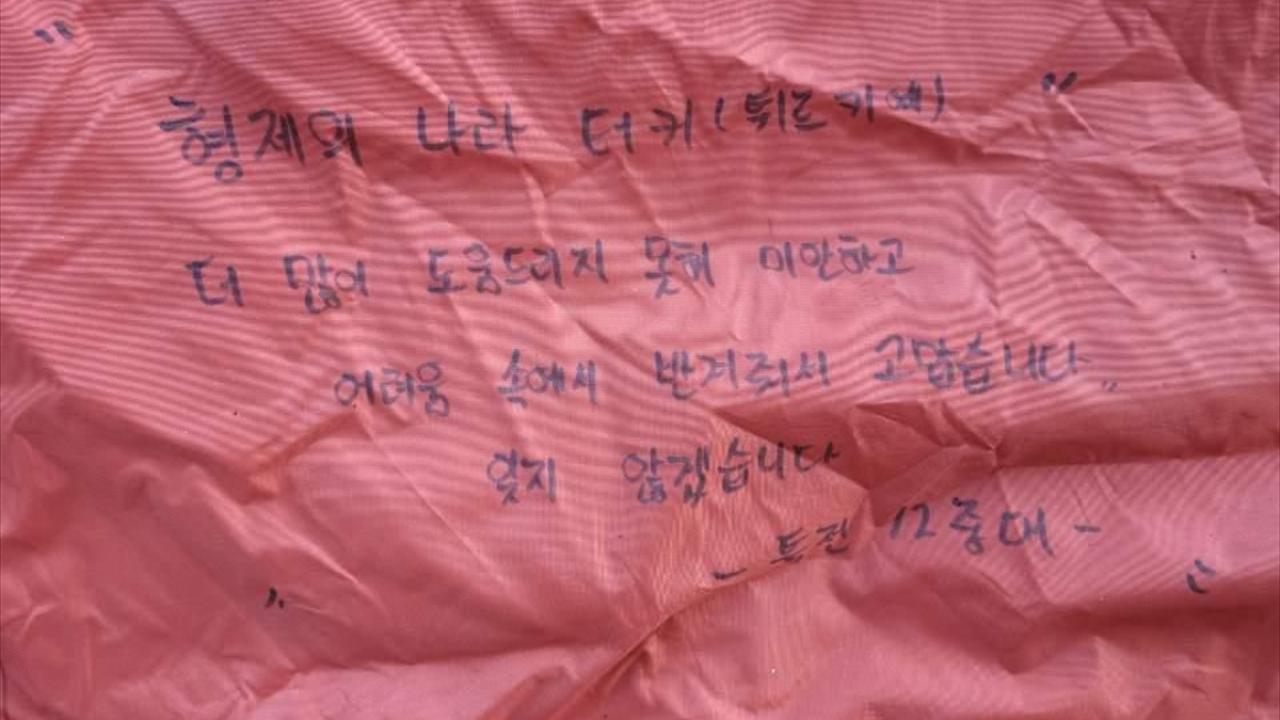 " 형제의 나라 터키(튀르키예) "
더 많이 도움드리지 못해 미안하고
어려움 속에서 반겨줘서 고맙습니다.
잊지 않겠습니다
- 특전 12중대 -